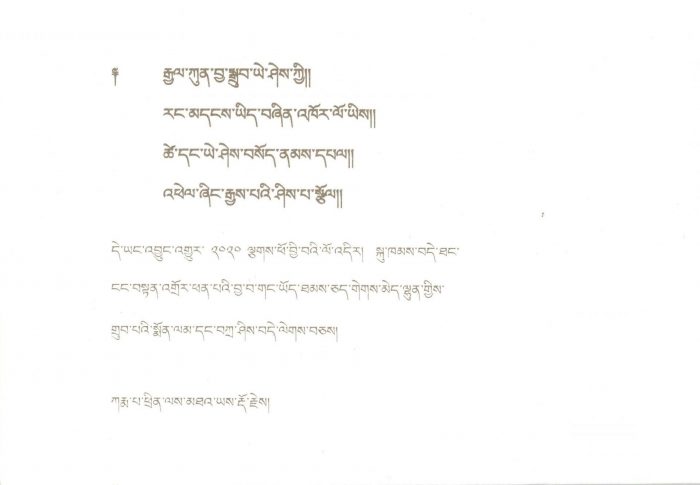 ༈ རྒྱལ་ཀུན་བྱ་སྒྲུབ་ཡེ་ཤེས་ཀྱི།།
རང་མདངས་ཡིད་བཞིན་འཁོར་ལོ་ཡིས།།
ཚེ་དང་ཡེ་ཤེས་བསོད་ནམས་དཔལ།།
འཕེལ་ཞིང་རྒྱས་པའི་ཤིས་པ་སྩོལ།།
དེ་ཡང་འབྱུང་འགྱུར་ ༢༠༢༠ ལྕགས་ཕོ་བྱི་བའི་ལོ་འདིར། སྐུ་ཁམས་བདེ་ཐང་
ངང་བསྟན་འགྲོར་ཕན་པའི་བྱ་བ་གང་ཡོད་ཐམས་ཅད་གེགས་མེད་ལྷུན་གྱིས་
གྲུབ་པའི་སྨོན་ལམ་དང་བཀྲ་ཤིས་བདེ་ལེགས་བཅས།
ཀརྨ་པ་ཕྲིན་ལས་མཐའ་ཡས་རྡོ་རྗེས།